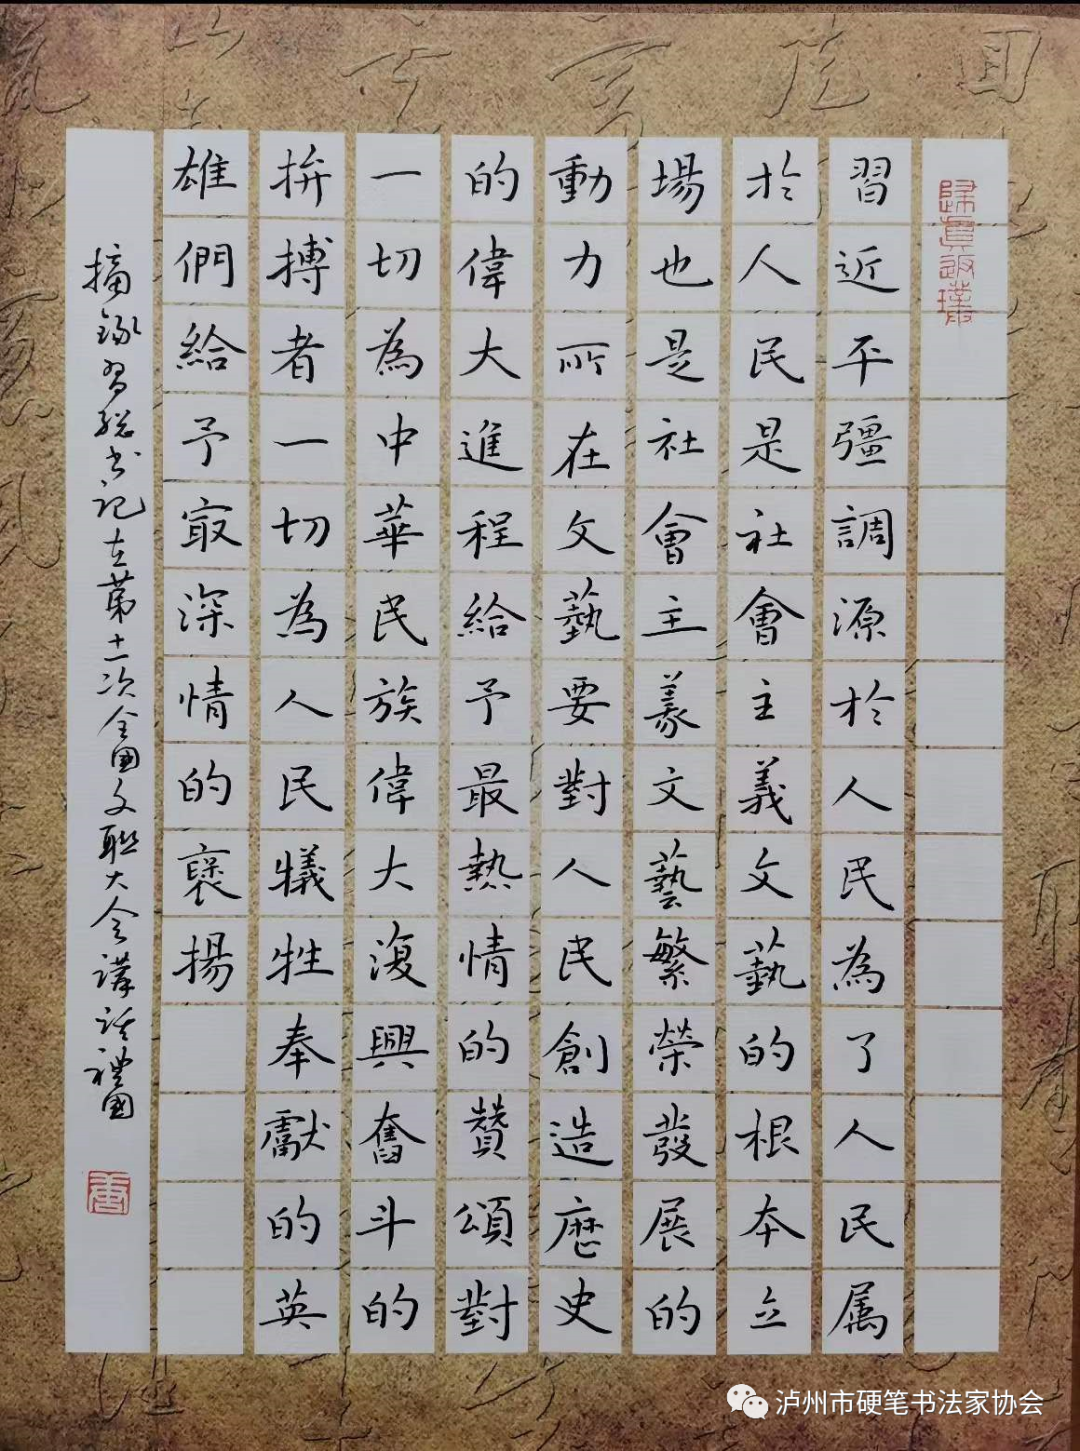 歸真返璞
習近平彊調源於人民為了人民属
於人民是社會主義文藝的根本立
場也是社會主義文藝繁榮發展的
動力所在文藝要對人民創造歷史
的偉大進程給予最熱情的贊頌對
一切為中華民族偉大復興奮斗的
拚搏者一切為人民犧牲奉獻的英
雄們給予冣深情的襃揚
摘錄習總书记在第十一次全國文聯大会講話禮國
泸州市硬笔书法家协会